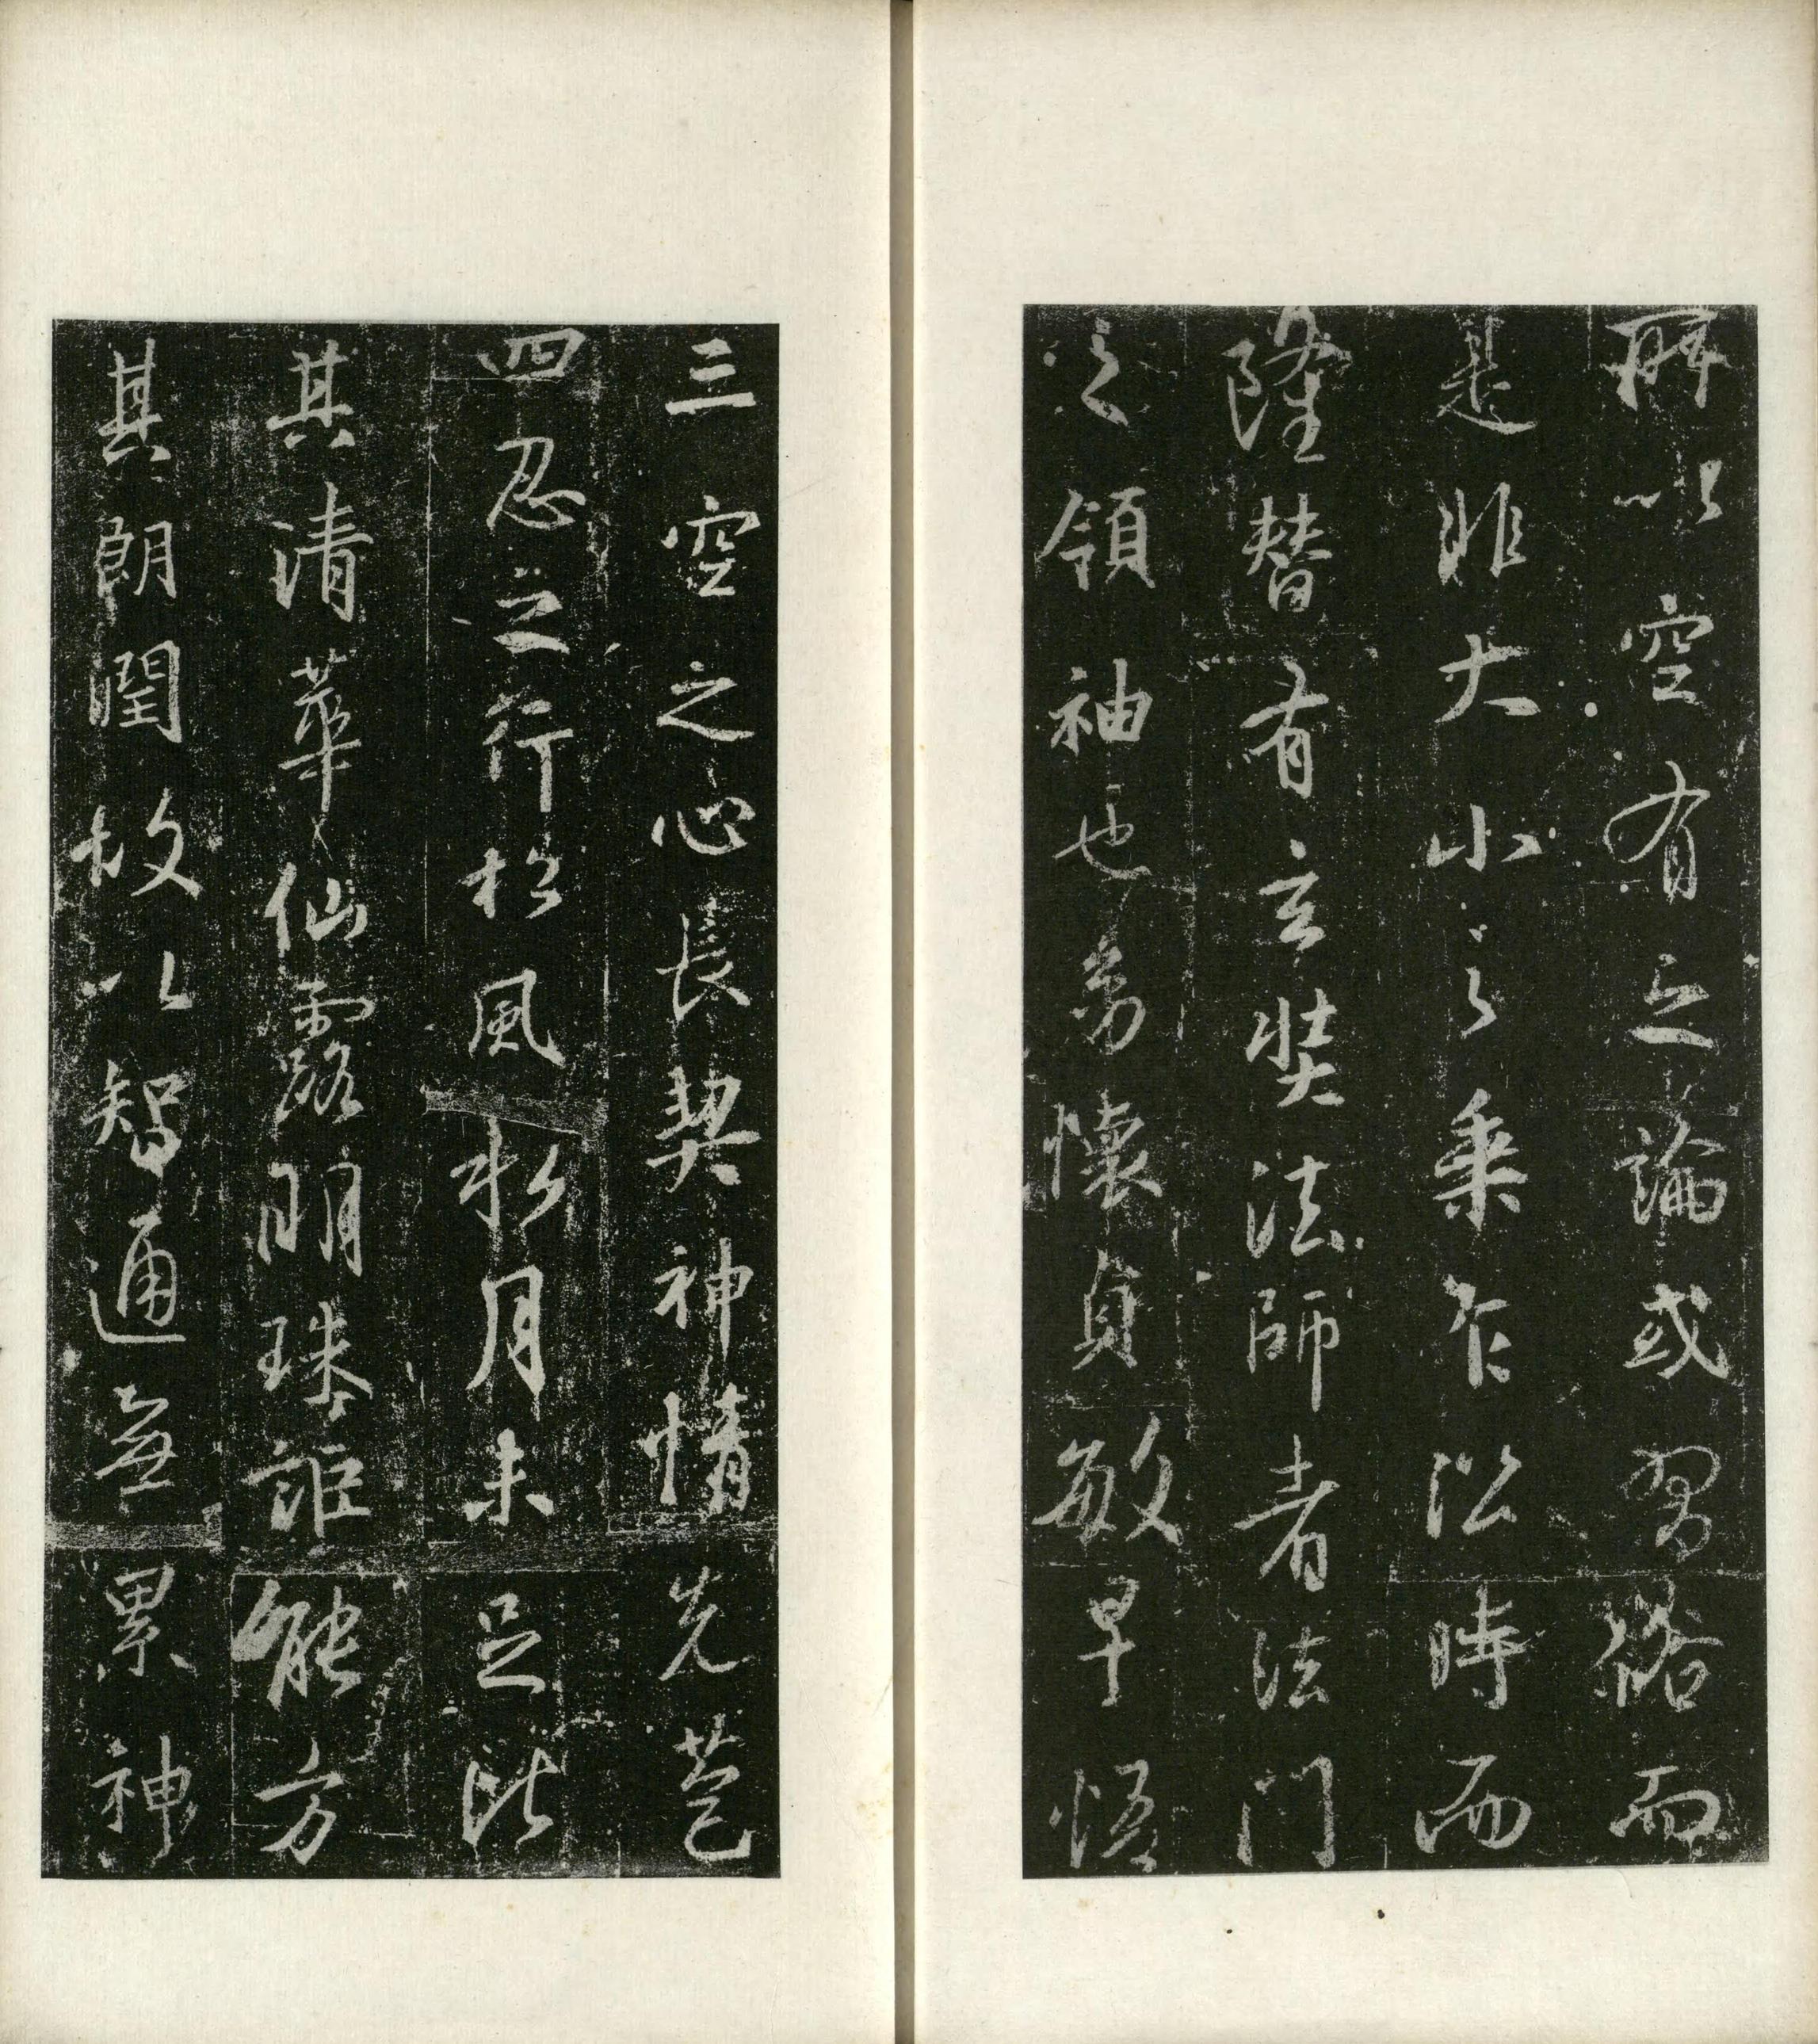 所以空有之論或習俗而
是非大小之乘乍沿時而
隆替有玄奘法師者法門
之領袖也幼懷貞敏早悟
三空之心長契神情先苞
四忍之行松風水月未足比
其清華仙露明珠詎能方
其朗潤故以智通無累神